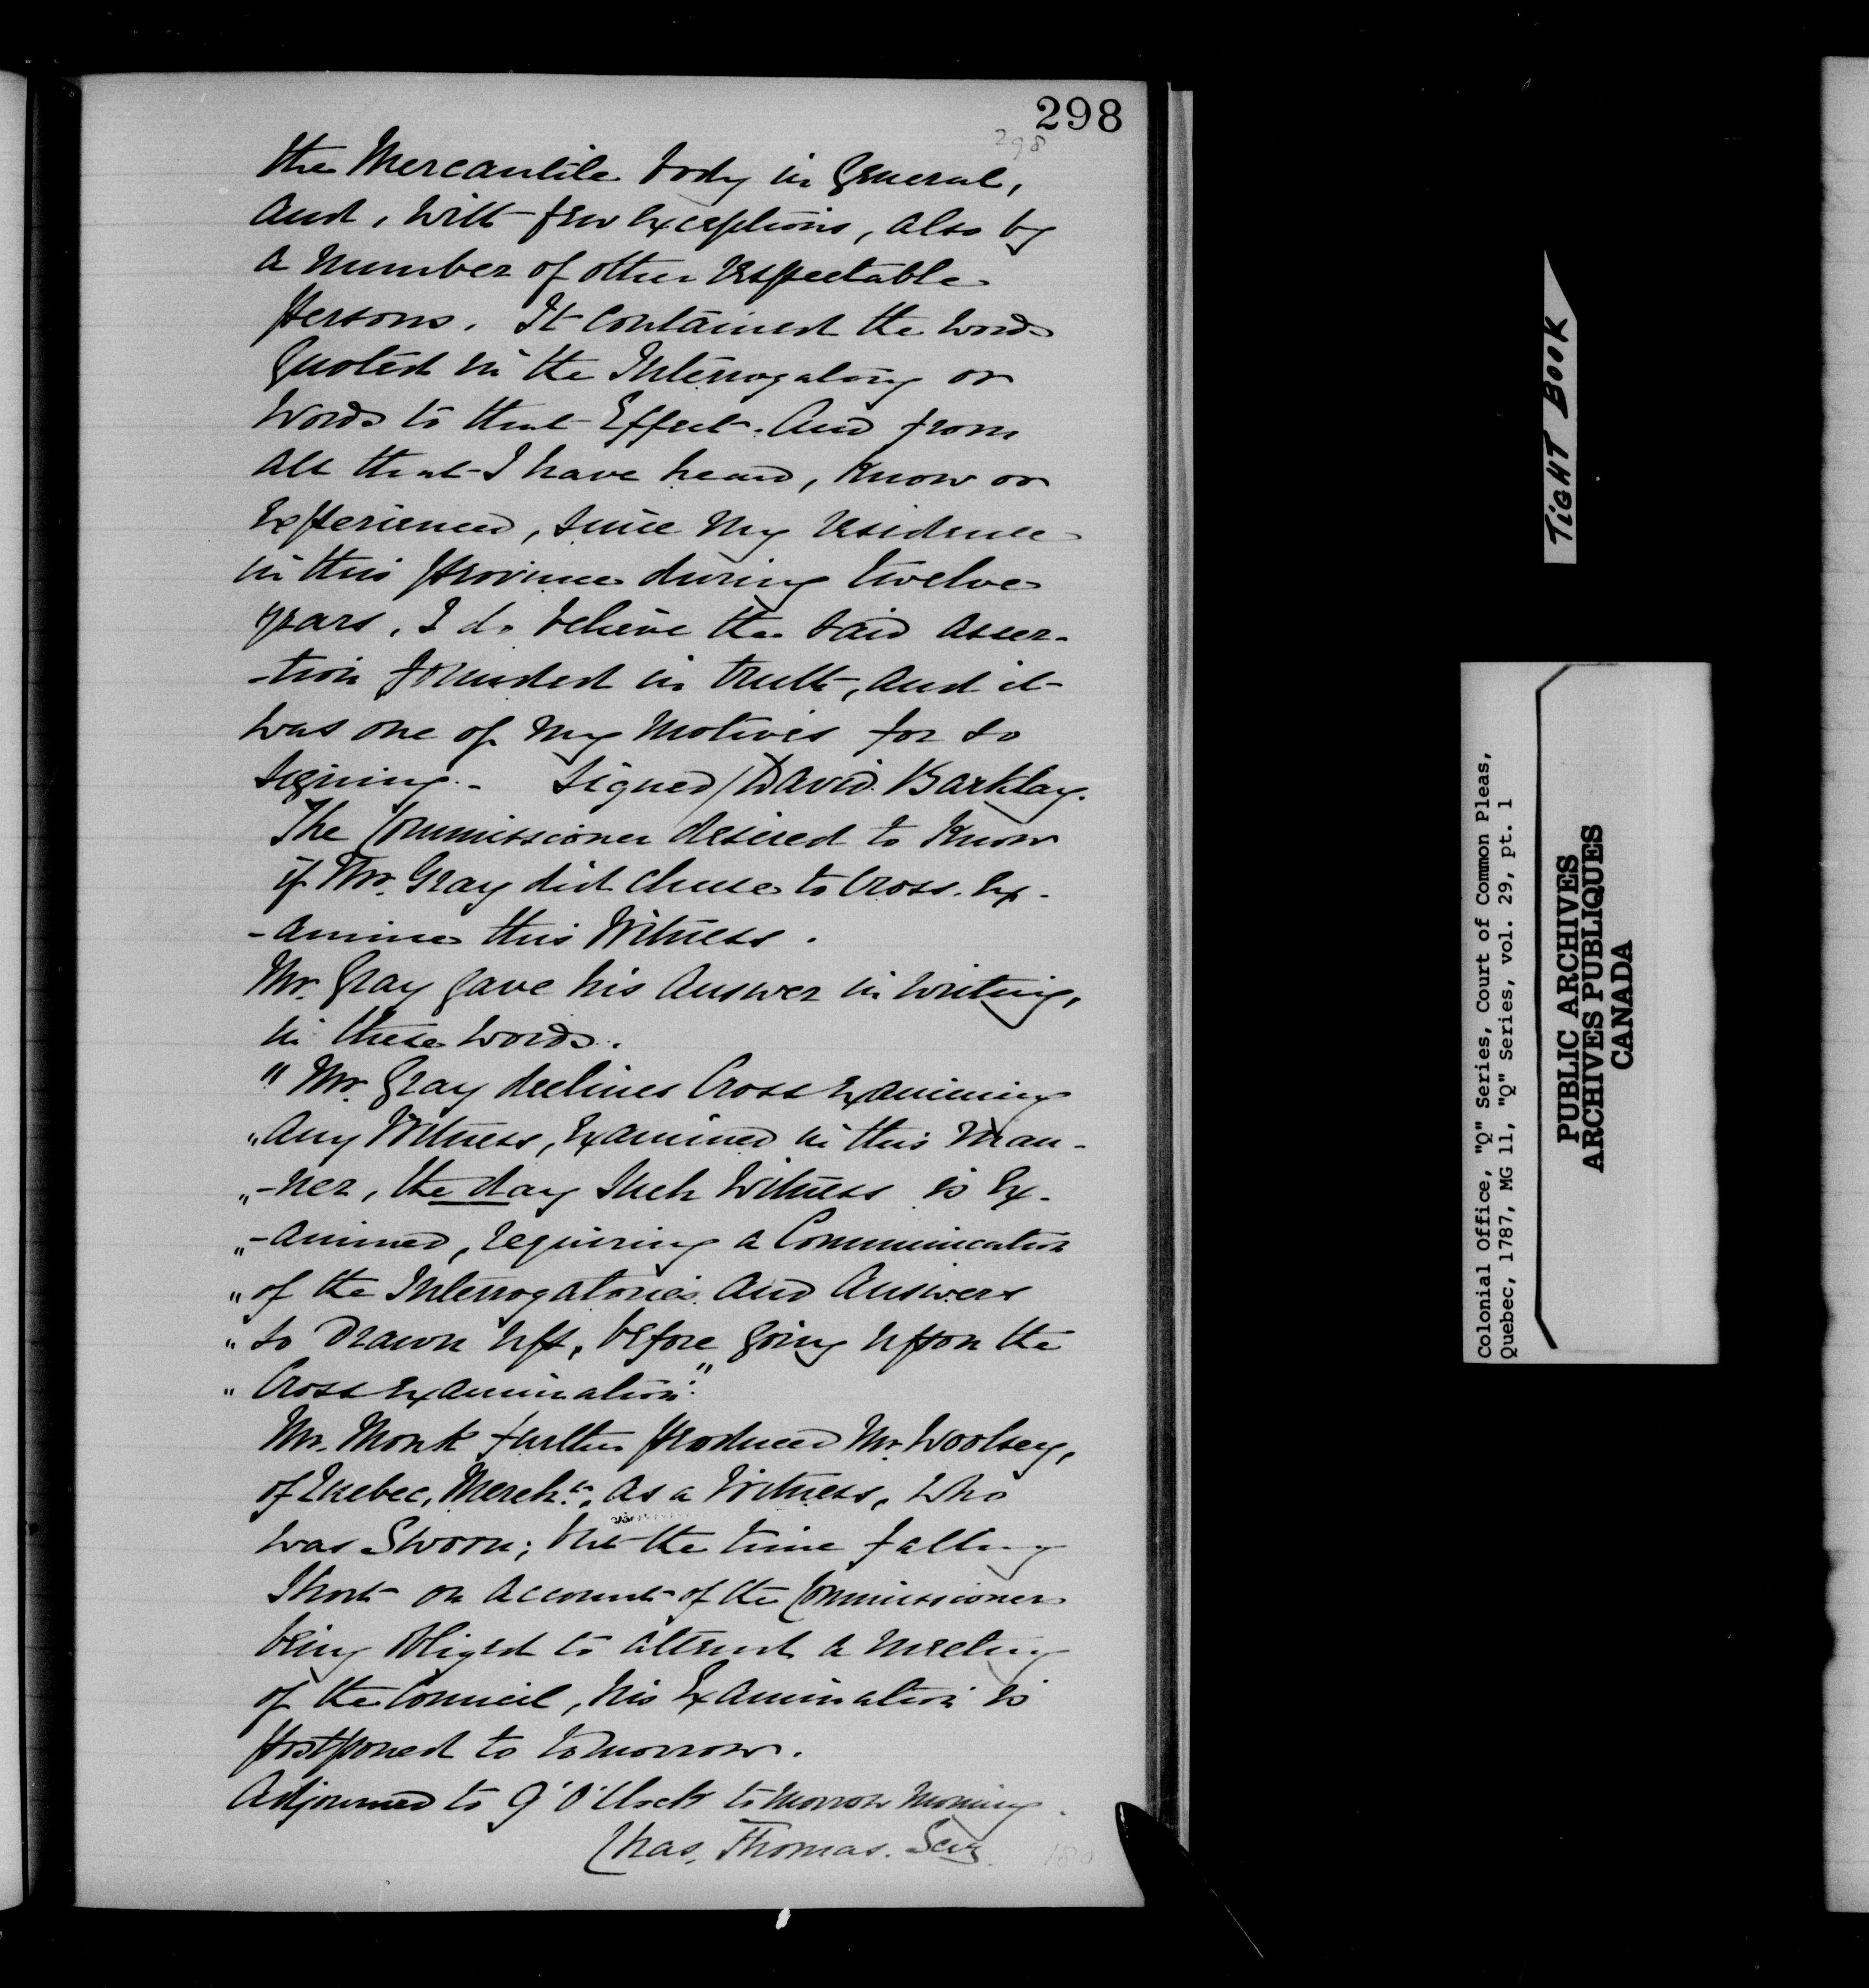 298
298
the Mercantile body in General,
and, with few exceptions, also by
a number of other respectable
persons. It contained the words
quoted in the Interrogatory or
words to that Effect. And from
all that I have heard, know or
experienced, since my residence
in this province during twelve
years, I do believe the said asser-
-tion founded in truth, and it
was one of my motives for so
signing.- Signed/David Barklay.
The Commissioner desired to know
if Mr. Gray did chuse to Cross. Ex-
-amine this Witness.
Mr. Gray gave his answer in writing,
in these words.
"Mr. Gray declines Cross Examining
"any Witness, examined in this man-
"-ner, the day such Witness is Ex-
"-amined, requiring a Communication
"of the Interrogatories and answers
"so drawn up, before going upon the
"Cross Examination."
Mr. Monk further produced Mr. Woolsey,
of Quebec, Mercht., as a Witness, who
was Sworn; but the time falling
short on account of the Commissioner
being obliged to attend a meeting
of the Council, his Examination is
postponed to tomorrow.
Adjourned to 9 O'Clock tomorrow morning.
Chas. Thomas. Secy
180
TIGHT BOOK
Colonial Office, "Q" Series, Court of Common Pleas,
Quebec, 1787, MG 11, "Q" Series, vol. 29, pt. 1
PUBLIC ARCHIVES
ARCHIVES PUBLIQUES
CANADA